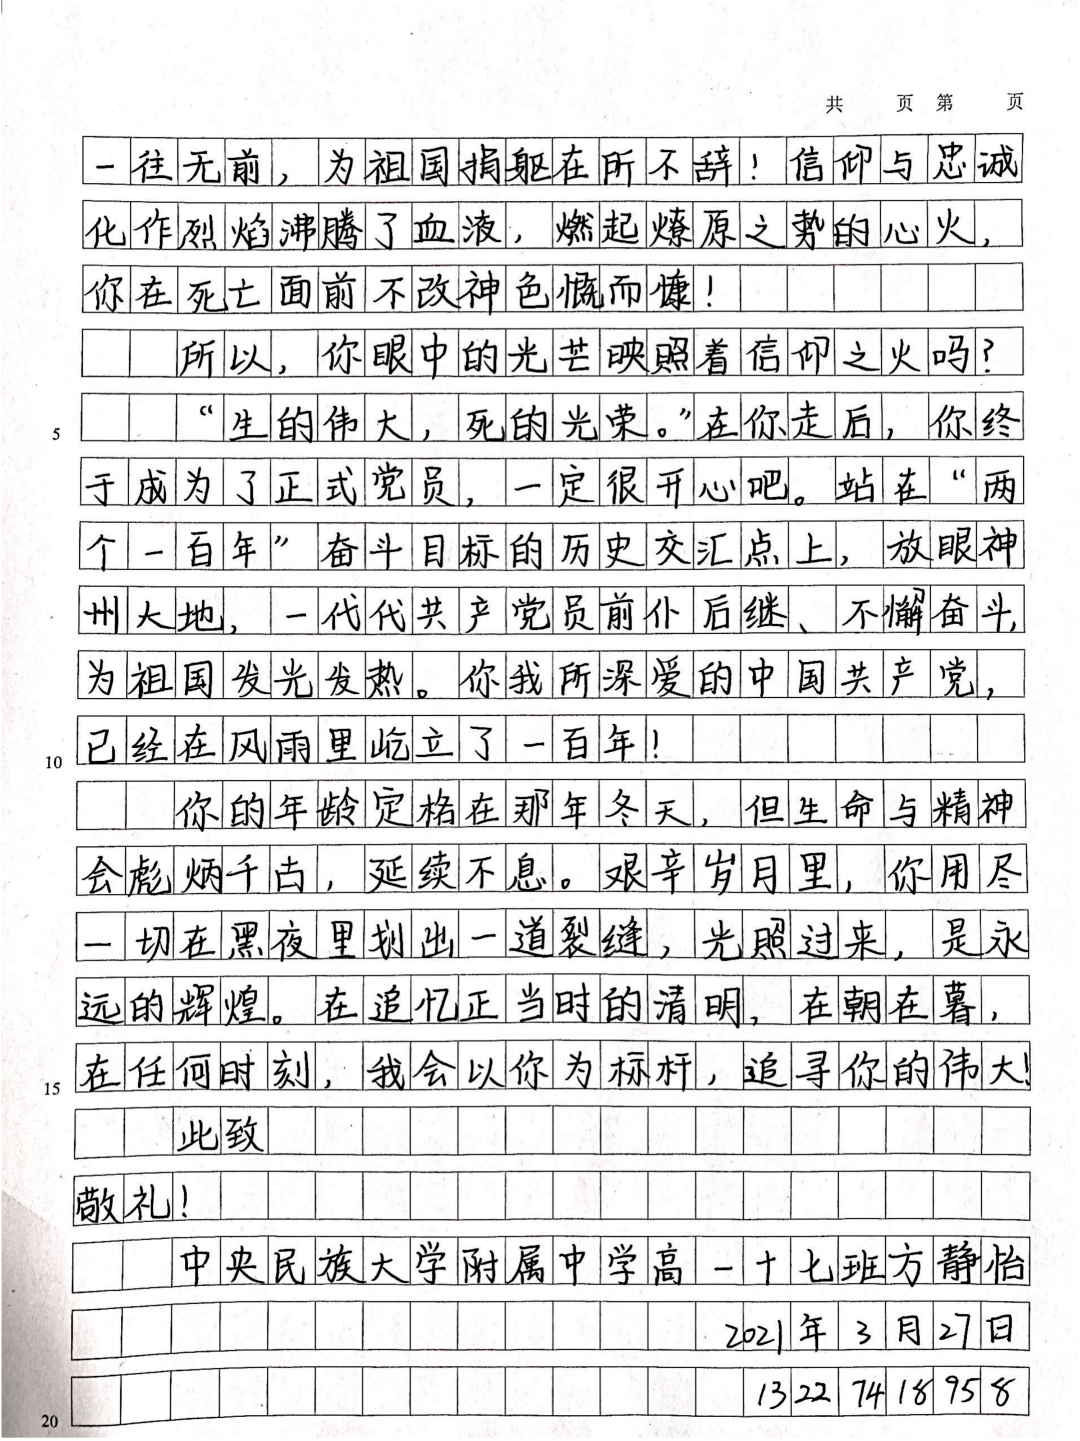 共 页 第 页
一往无前，为祖国捐躯在所不辞！信仰与忠诚
化作烈焰沸腾了血液，燃起燎原之势的心火，
你在死亡面前不改神色慨而慷！
所以，你眼中的光芒映照着信仰之火吗？
5 “生的伟大，死的光荣。”在你走后，你终
于成为了正式党员，一定很开心吧。站在“两
个一百年”奋斗目标的历史交汇点上，放眼神
州大地，一代代共产党员前仆后继、不懈奋斗，
为祖国发光发热。你我所深爱的中国共产党，
10 已经在风雨里屹立了一百年！
你的年龄定格在那年冬天，但生命与精神
会彪炳千古，延续不息。艰辛岁月里，你用尽
一切在黑夜里划出一道裂缝，光照过来，是永
远的辉煌。在追忆正当时的清明，在朝在暮，
15 在任何时刻，我会以你为标杆，追寻你的伟大！
此致
敬礼！
中央民族大学附属中学高一十七班方静怡
2021年3月27日
20 13227418958